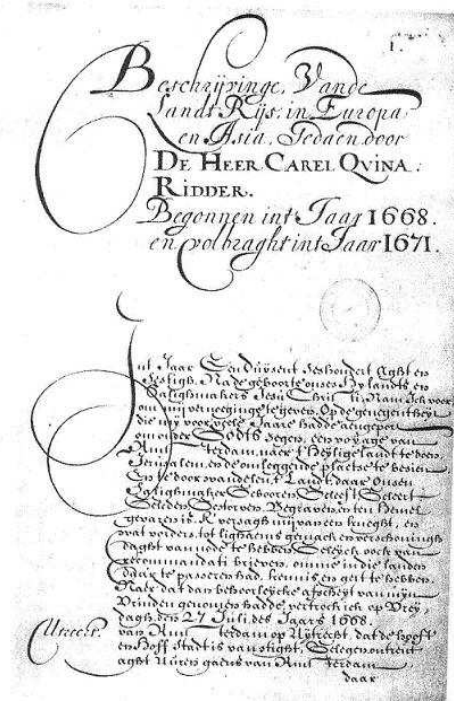 1.
Beschrijvinge, Vande
Lands Rijs, in Europa
en Asia, Gedaen door
DE HEER CAREL QVINA.
RIDDER.
Begonnen int Jaar 1668.
en volbraght int Jaar 1671.
Int Jaar Een duysent seshondert Aght en
sestigh. Na de geboorte onses Heylandts en
Salighmakers Jesu Christi. Nam Ick voor
om mij vernoeginge te geven, Op de genegentheyt
die mij voor veele Jaare hadde aengeport
om onder Godts segen, een voyage van
Amsterdam, naer 't Heylige landt te doen,
Jerusalem, en de omleggende plaetse te besien
En te door wandelen, 't Landt, daar Onsen
Salighmaker Gebooren Geleeft Geleert
Geleden Gestorven, Begraven, en ten Hemel
gevaren is. K versagh mij van een knecht, en
wat vorders, tot lighaems gemack en verschoningh
daght van node te hebben, Geleyck oock van
recommandati brieven, om mie in die landen
daar te passeren had, kennis en gelt te hebben.
Naer dat dan behoorleycke afscheyt van mijn
Vrinden genomen hadde, vertrock ick op Vrey,
dagh, den 27 Juli, des Jaars 1668.
van Amsterdam op Uytrecht, dat de hooft
en Hoff Stadt is van stight, Gelegen ontrent
aght Uuren gaens van Amsterdam
daar
Utrecht.